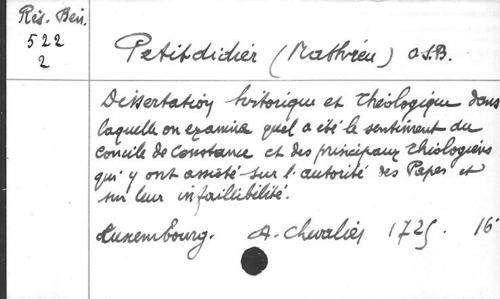 Rés. Bén.
522
2
Petitdidier (Mathieu) O.S.B.
Dissertation historique et théologique dans
laquelle on examine quel a été le sentiment du
Concile de Constance et des principaux théologiens
qui y ont assisté sur l'autorité des Papes et
sur leur infaillibilité.
Luxembourg. A. Chevalier 1725. 16°